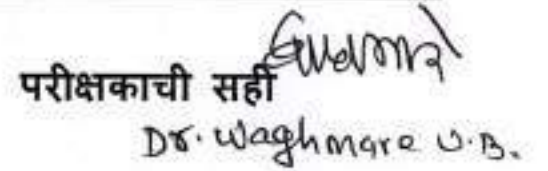 परीक्षकाची सही
Dr. Waghmare U.B.